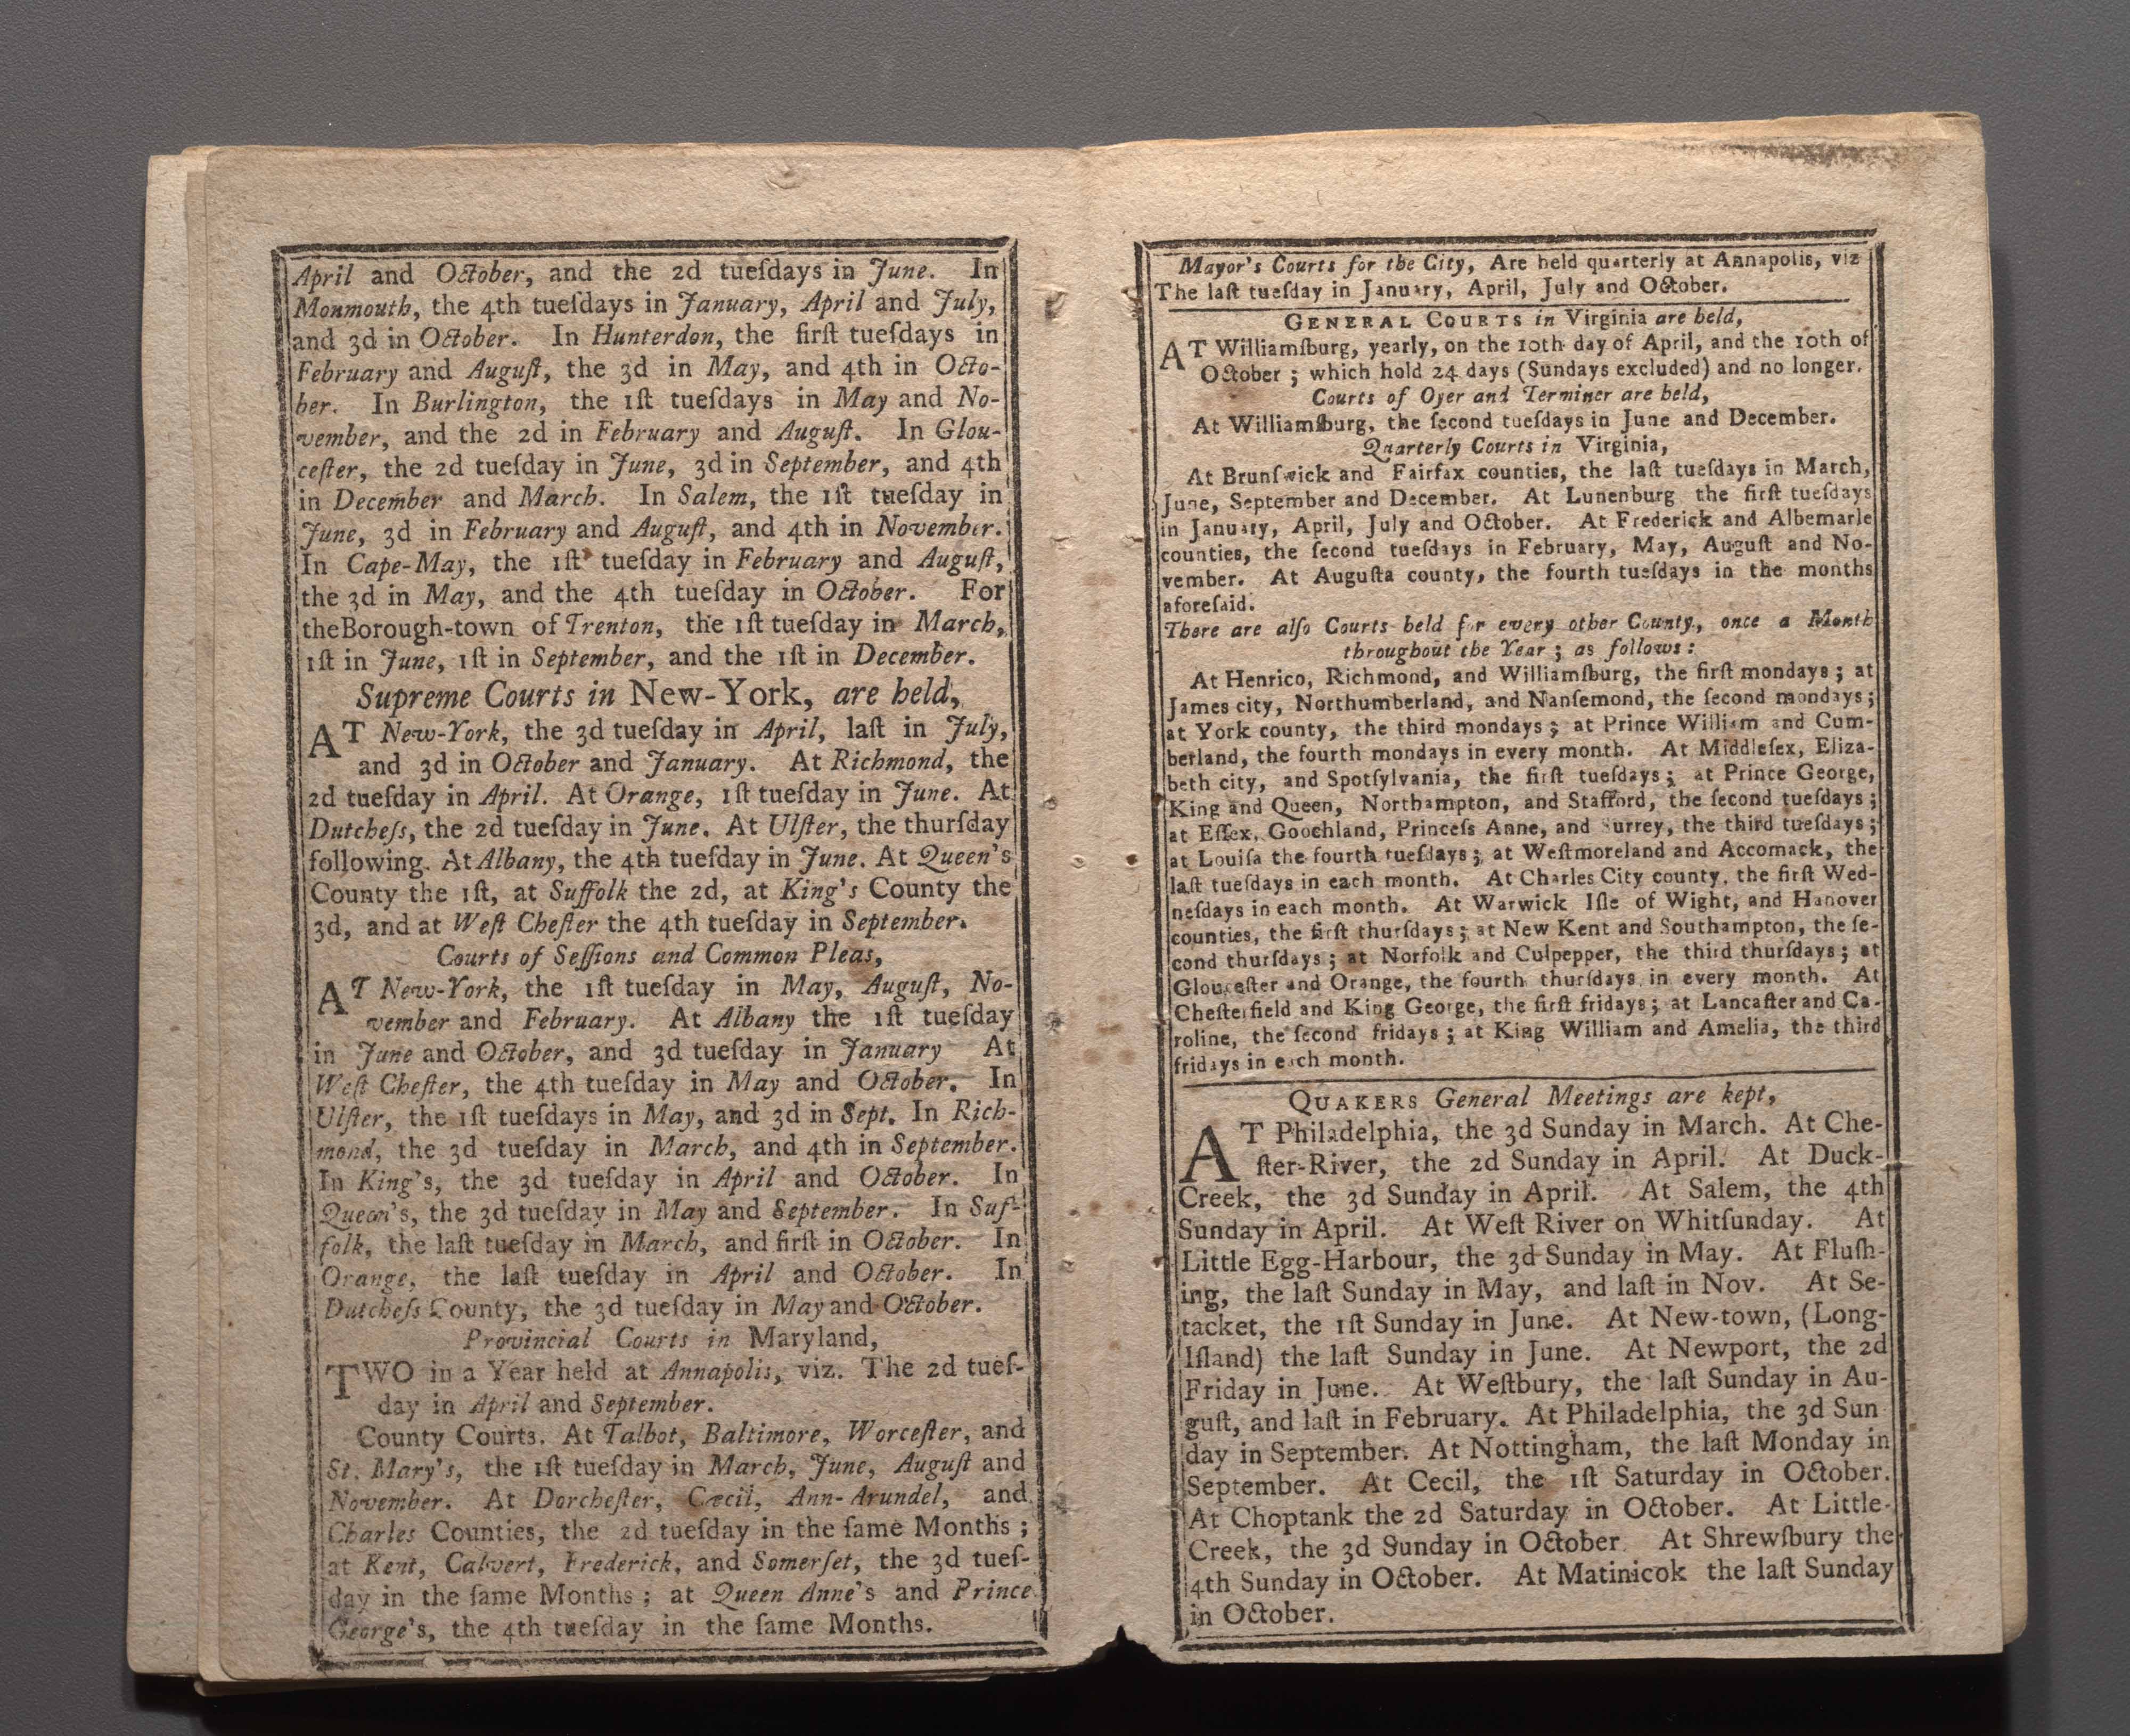 April and October, and the 2d tueſdays in June. In
Monmouth, the 4th tueſdays in January, April and July,
and 3d in October. In Hunterdon, the firſt tueſdays in
February and Auguſt, the 3d in May, and 4th in Octo-
ber. In Burlington, the 1ſt tueſdays in May and No-
vember, and the 2d in February and Auguſt. In Glou-
ceſter, the 2d tueſday in June, 3d in September, and 4th
in December and March. In Salem, the 1ſt tueſday in
June, 3d in February and Auguſt, and 4th in November.
In Cape-May, the 1ſt tueſday in February and Auguſt,
the 3d in May, and the 4th tueſday in October. For
theBorough-town of Trenton, the 1ſt tueſday in March,
1ſt in June, 1ſt in September, and the 1ſt in December.
Supreme Courts in New-York, are held,
AT New-York, the 3d tueſday in April, laſt in July,
and 3d in October and January. At Richmond, the
2d tueſday in April. At Orange, 1ſt tueſday in June. At
Dutcheſs, the 2d tueſday in June. At Ulſter, the thurſday
following. At Albany, the 4th tueſday in June. At Queen's
County the 1ſt, at Suffolk the 2d, at King's County the
3d, and at Weſt Cheſter the 4th tueſday in September.
Courts of Seſſions and Common Pleas,
AT New-York, the 1ſt tueſday in May, Auguſt, No-
vember and February. At Albany the 1ſt tueſday
in June and October, and 3d tueſday in January At
Weſt Cheſter, the 4th tueſday in May and October. In
Ulſter, the 1ſt tueſdays in May, and 3d in Sept. In Rich-
mond, the 3d tueſday in March, and 4th in September.
In King's, the 3d tueſday in April and October. In
Queen's, the 3d tueſday in May and September. In Suf-
folk, the laſt tueſday in March, and firſt in October. In
Orange, the laſt tueſday in April and October. In
Dutcheſs County, the 3d tueſday in May and October.
Provincial Courts in Maryland,
TWO in a Year held at Annapolis, viz. The 2d tueſ-
day in April and September.
County Courts. At Talbot, Baltimore, Worceſter, and
St. Mary's, the 1ſt tueſday in March, June, Auguſt and
November. At Dorcheſter, Cæcil, Ann-Arundel, and
Charles Counties, the 2d tueſday in the ſame Months ;
at Kent, Calvert, Frederick, and Somerſet, the 3d tueſ-
day in the ſame Months ; at Queen Anne's and Prince
George's, the 4th tueſday in the ſame Months.
Mayor's Courts for the City, Are held quarterly at Annapolis, viz
The laſt tueſday in January, April, July and October.
GENERAL COURTS in Virginia are held,
AT Williamſburg, yearly, on the 10th day of April, and the 10th of
October ; which hold 24 days (Sundays excluded) and no longer.
Courts of Oyer and Terminer are held,
At Williamſburg, the ſecond tueſdays in June and December.
Quarterly Courts in Virginia,
At Brunſwick and Fairfax counties, the laſt tueſdays in March,
June, September and December. At Lunenburg the firſt tueſdays
in January, April, July and October. At Frederick and Albemarle
counties, the ſecond tueſdays in February, May, Auguſt and No-
vember. At Auguſta county, the fourth tueſdays in the months
aforeſaid.
There are alſo Courts held for every other County, once a Month
throughout the Year ; as follows :
At Henrico, Richmond, and Williamſburg, the firſt mondays ; at
James city, Northumberland, and Nanſemond, the ſecond mondays ;
at York county, the third mondays ; at Prince William and Cum-
berland, the fourth mondays in every month. At Middleſex, Eliza-
beth city, and Spotſylvania, the firſt tueſdays ; at Prince George,
King and Queen, Northampton, and Stafford, the ſecond tueſdays ;
at Eſſex, Goochland, Princeſs Anne, and Surrey, the third tueſdays ;
at Louiſa the fourth tueſdays ; at Weſtmoreland and Accomack, the
laſt tueſdays in each month. At Charles City county, the firſt Wed-
neſdays in each month. At Warwick Iſle of Wight, and Hanover
counties, the firſt thurſdays ; at New Kent and Southampton, the ſe-
cond thurſdays ; at Norfolk and Culpepper, the third thurſdays ; at
Glouceſter and Orange, the fourth thurſdays in every month. At
Cheſterfield and King George, the firſt fridays ; at Lancaſter and Ca-
roline, the ſecond fridays ; at King William and Amelia, the third
fridays in each month.
QUAKERS General Meetings are kept,
AT Philadelphia, the 3d Sunday in March. At Che-
ſter-River, the 2d Sunday in April. At Duck-
Creek, the 3d Sunday in April. At Salem, the 4th
Sunday in April. At Weſt River on Whitſunday. At
Little Egg-Harbour, the 3d Sunday in May. At Fluſh-
ing, the laſt Sunday in May, and laſt in Nov. At Se-
tacket, the 1ſt Sunday in June. At New-town, (Long-
Iſland) the laſt Sunday in June. At Newport, the 2d
Friday in June. At Weſtbury, the laſt Sunday in Au-
guſt, and laſt in February. At Philadelphia, the 3d Sun
day in September. At Nottingham, the laſt Monday in
September. At Cecil, the 1ſt Saturday in October.
At Choptank the 2d Saturday in October. At Little-
Creek, the 3d Sunday in October At Shrewſbury the
4th Sunday in October. At Matinicok the laſt Sunday
in October.